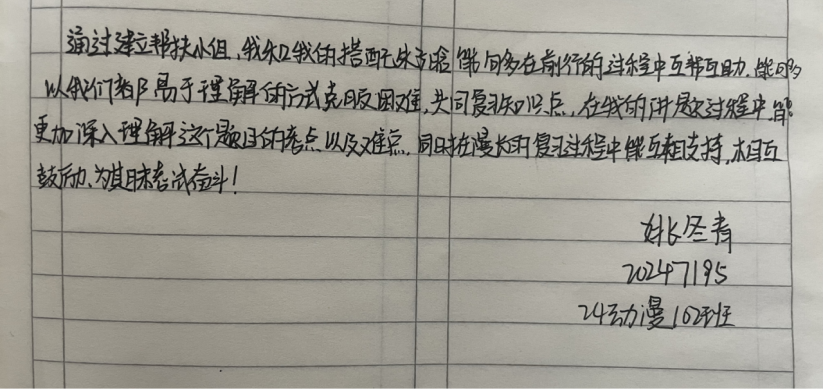 通过建立帮扶小组,我和我的搭配朱言晗能够在前行的过程中互帮互助,能够
以我们都易于理解的方式克服困难,共同复习知识点,在我的讲题过程中,能
更加深入理解这个题目的考点以及难点,同时在漫长的复习过程中能互相支持,相互
鼓励、为期末考试奋斗!
姚冬青
20247195
24动漫162班